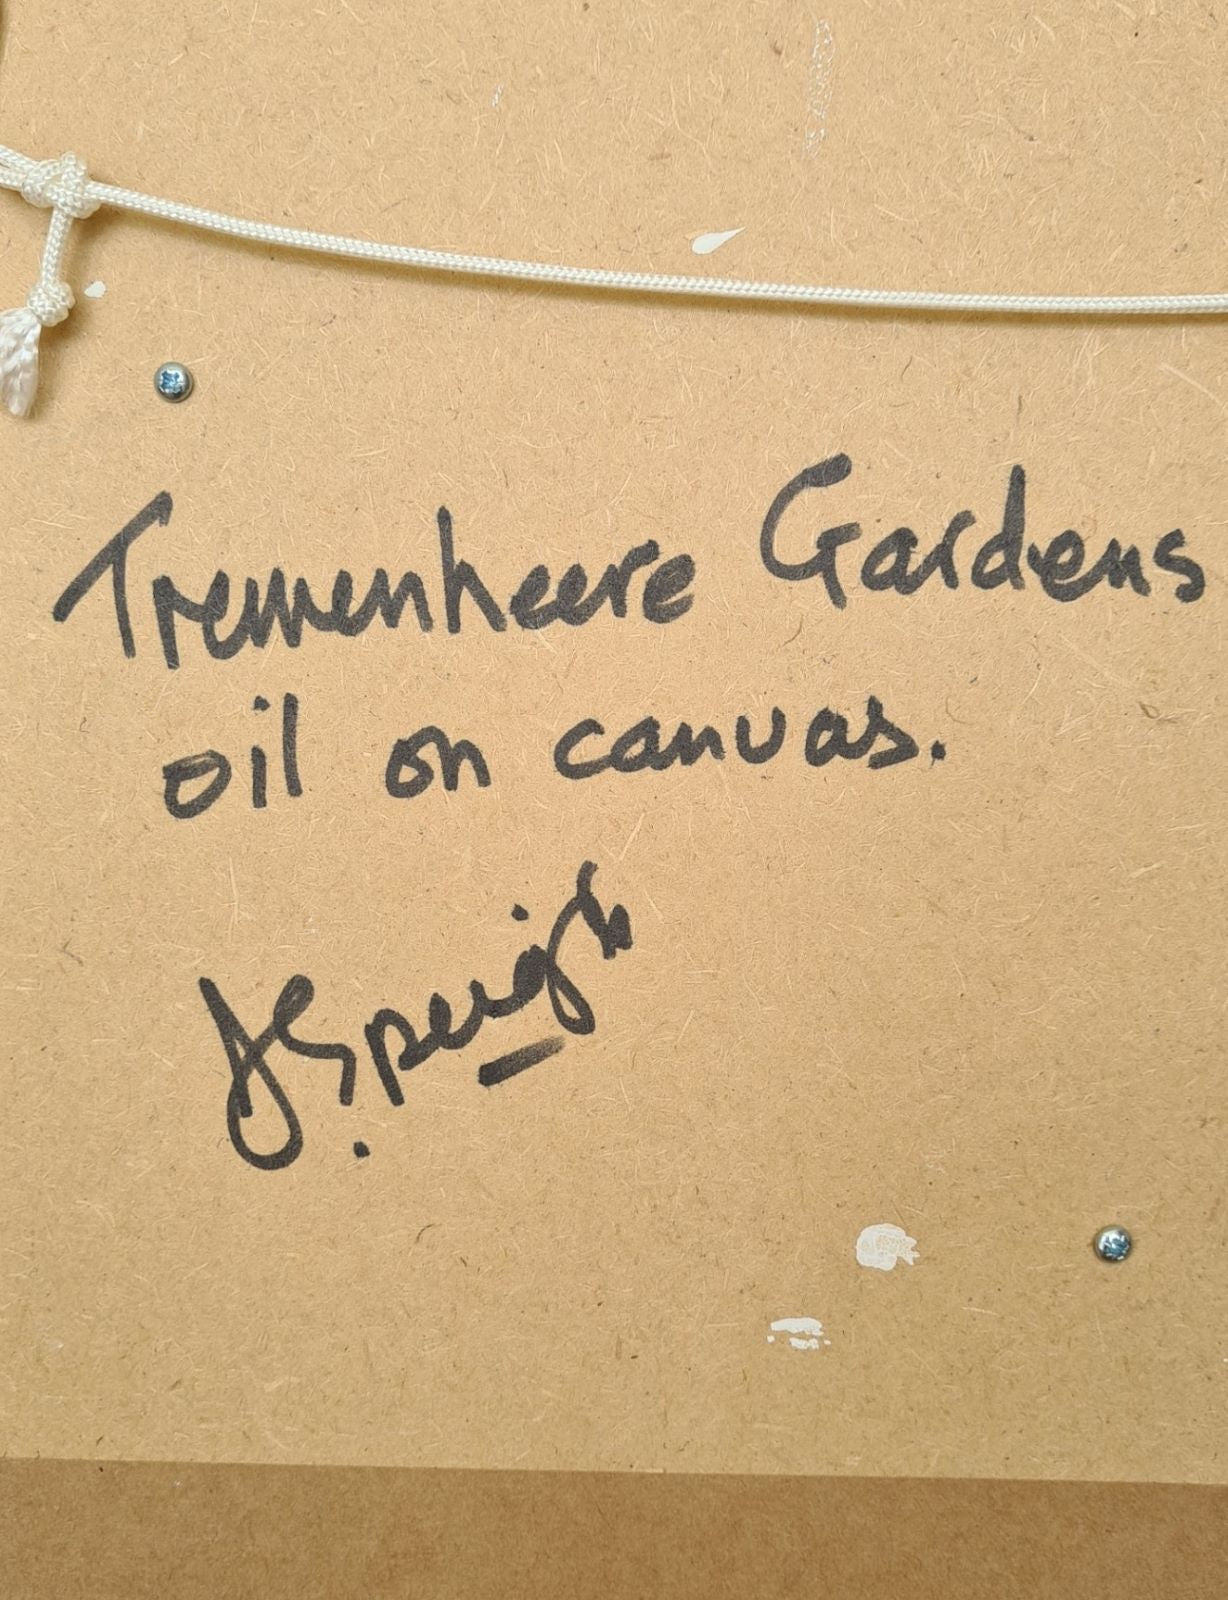 Tremenheere Gardens
oil on canvas.